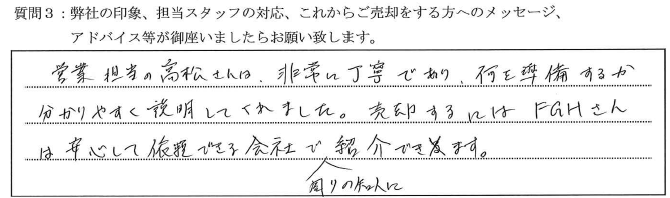 質問３：弊社の印象、担当スタッフの対応、これからご売却をする方へのメッセージ、
アドバイス等が御座いましたらお願い致します。
営業担当の高松さんは、非常に丁寧であり、何を準備するか
分かりやすく説明してくれました。売却するにはFGHさん
は安心して依頼できる会社で紹介できます。
周りの知人に